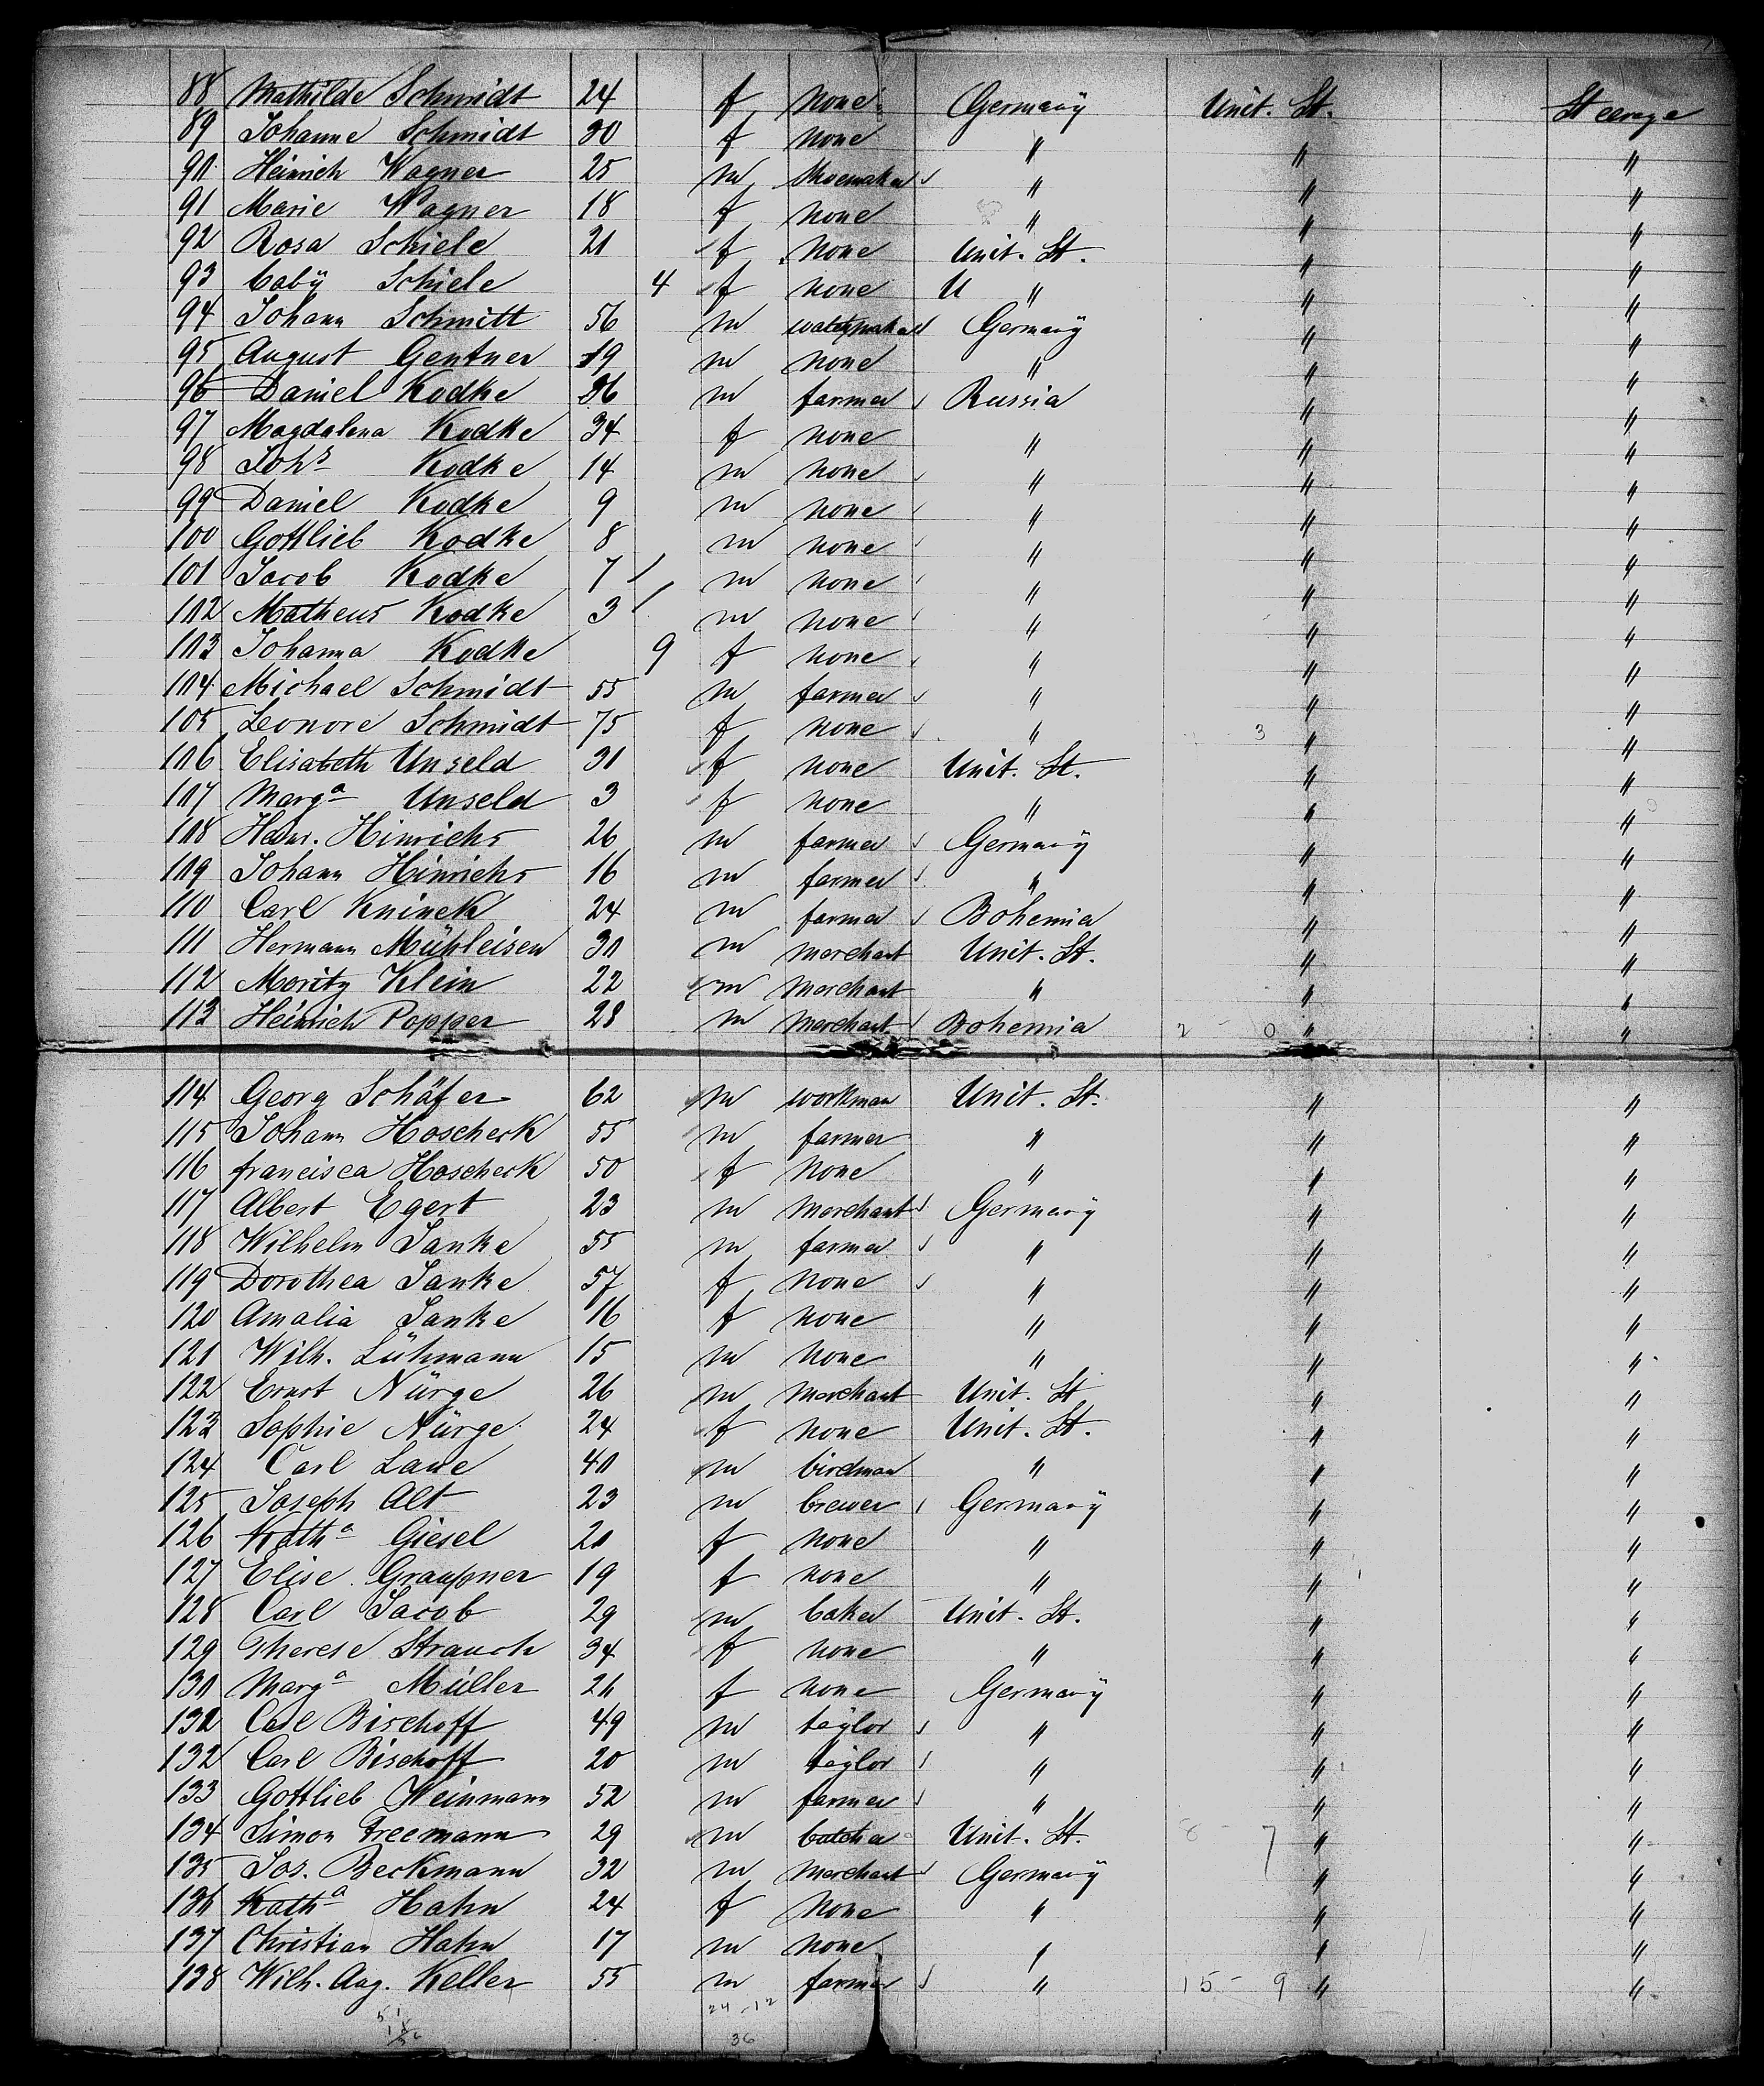 88 Mathilde Schmidt 24 f none Germany Unit. St. Steerage
89 Johanne Schmidt 30 f none " " "
90 Heinrich Wagner 25 m shoemaker " " "
91 Marie Wagner 18 f none " " "
92 Rosa Schiele 21 f none Unit. St. " "
93 baby Schiele 4 f none U " " "
94 Johann Schmitt 56 m watchmaker Germany " "
95 August Gentner 19 m none " " "
96 Daniel Kodke 36 m farmer Russia " "
97 Magdalena Kodke 34 f none " " "
98 Johs Kodke 14 m none " " "
99 Daniel Kodke 9 m none " " "
100 Gottlieb Kodke 8 m none " " "
101 Jacob Kodke 7 m none " " "
102 Matheus Kodke 3 m none " " "
103 Johanna Kodke 9 f none " " "
104 Michael Schmidt 55 m farmer " " "
105 Leonore Schmidt 75 f none " 3 " "
106 Elisabeth Unseld 30 f none Unit. St. " "
107 Marga Unseld 3 f none " " "
108 Heinr. Hinrichs 26 m farmer Germany " "
109 Johann Hinrichs 16 m farmer " " "
110 Carl Kninek 24 m farmer Bohemia " "
111 Hermann Mühleisen 30 m merchant Unit. St. " "
112 Moritz Klein 22 m merchant " " "
113 Heinrich Popper 28 m merchant Bohemia 2 - 0 " "
114 Georg Schäfer 62 m workman Unit. St. " "
115 Johann Hoscheck 55 m farmer " " "
116 francisca Hoscheck 50 f none " " "
117 Albert Egert 23 m merchant Germany " "
118 Wilhelm Janke 55 m farmer " " "
119 Dorothea Janke 57 f none " " "
120 Amalia Janke 16 f none " " "
121 Wilh. Lühmann 15 m none " " "
122 Ernst Nürge 26 m merchant Unit. St " "
123 Sophie Nürge 24 f none Unit. St. " "
124 Carl Laue 40 m birdman " " "
125 Joseph Alt 23 m brewer Germany " "
126 Katha Giesel 20 f none " " "
127 Elise Graupner 19 f none " " "
128 Carl Jacob 29 m baker Unit. St. " "
129 Therese Strauch 34 f none " " "
130 Marga Müller 20 f none Germany " "
132 Carl Bischoff 49 m taylor " " "
132 Carl Bischoff 20 m taylor " " "
133 Gottlieb Weinmann 52 m farmer " " "
134 Simon Freemann 29 m butcher Unit. St. 8 - 7 " "
135 Jos. Beckmann 32 m merchant Germany " "
136 Katha Hahn 24 f none " " "
137 Christian Hahn 17 m none " " "
138 Wilh. Aug. Keller 55 m farmer " 15 - 9 " "
24 - 12
36